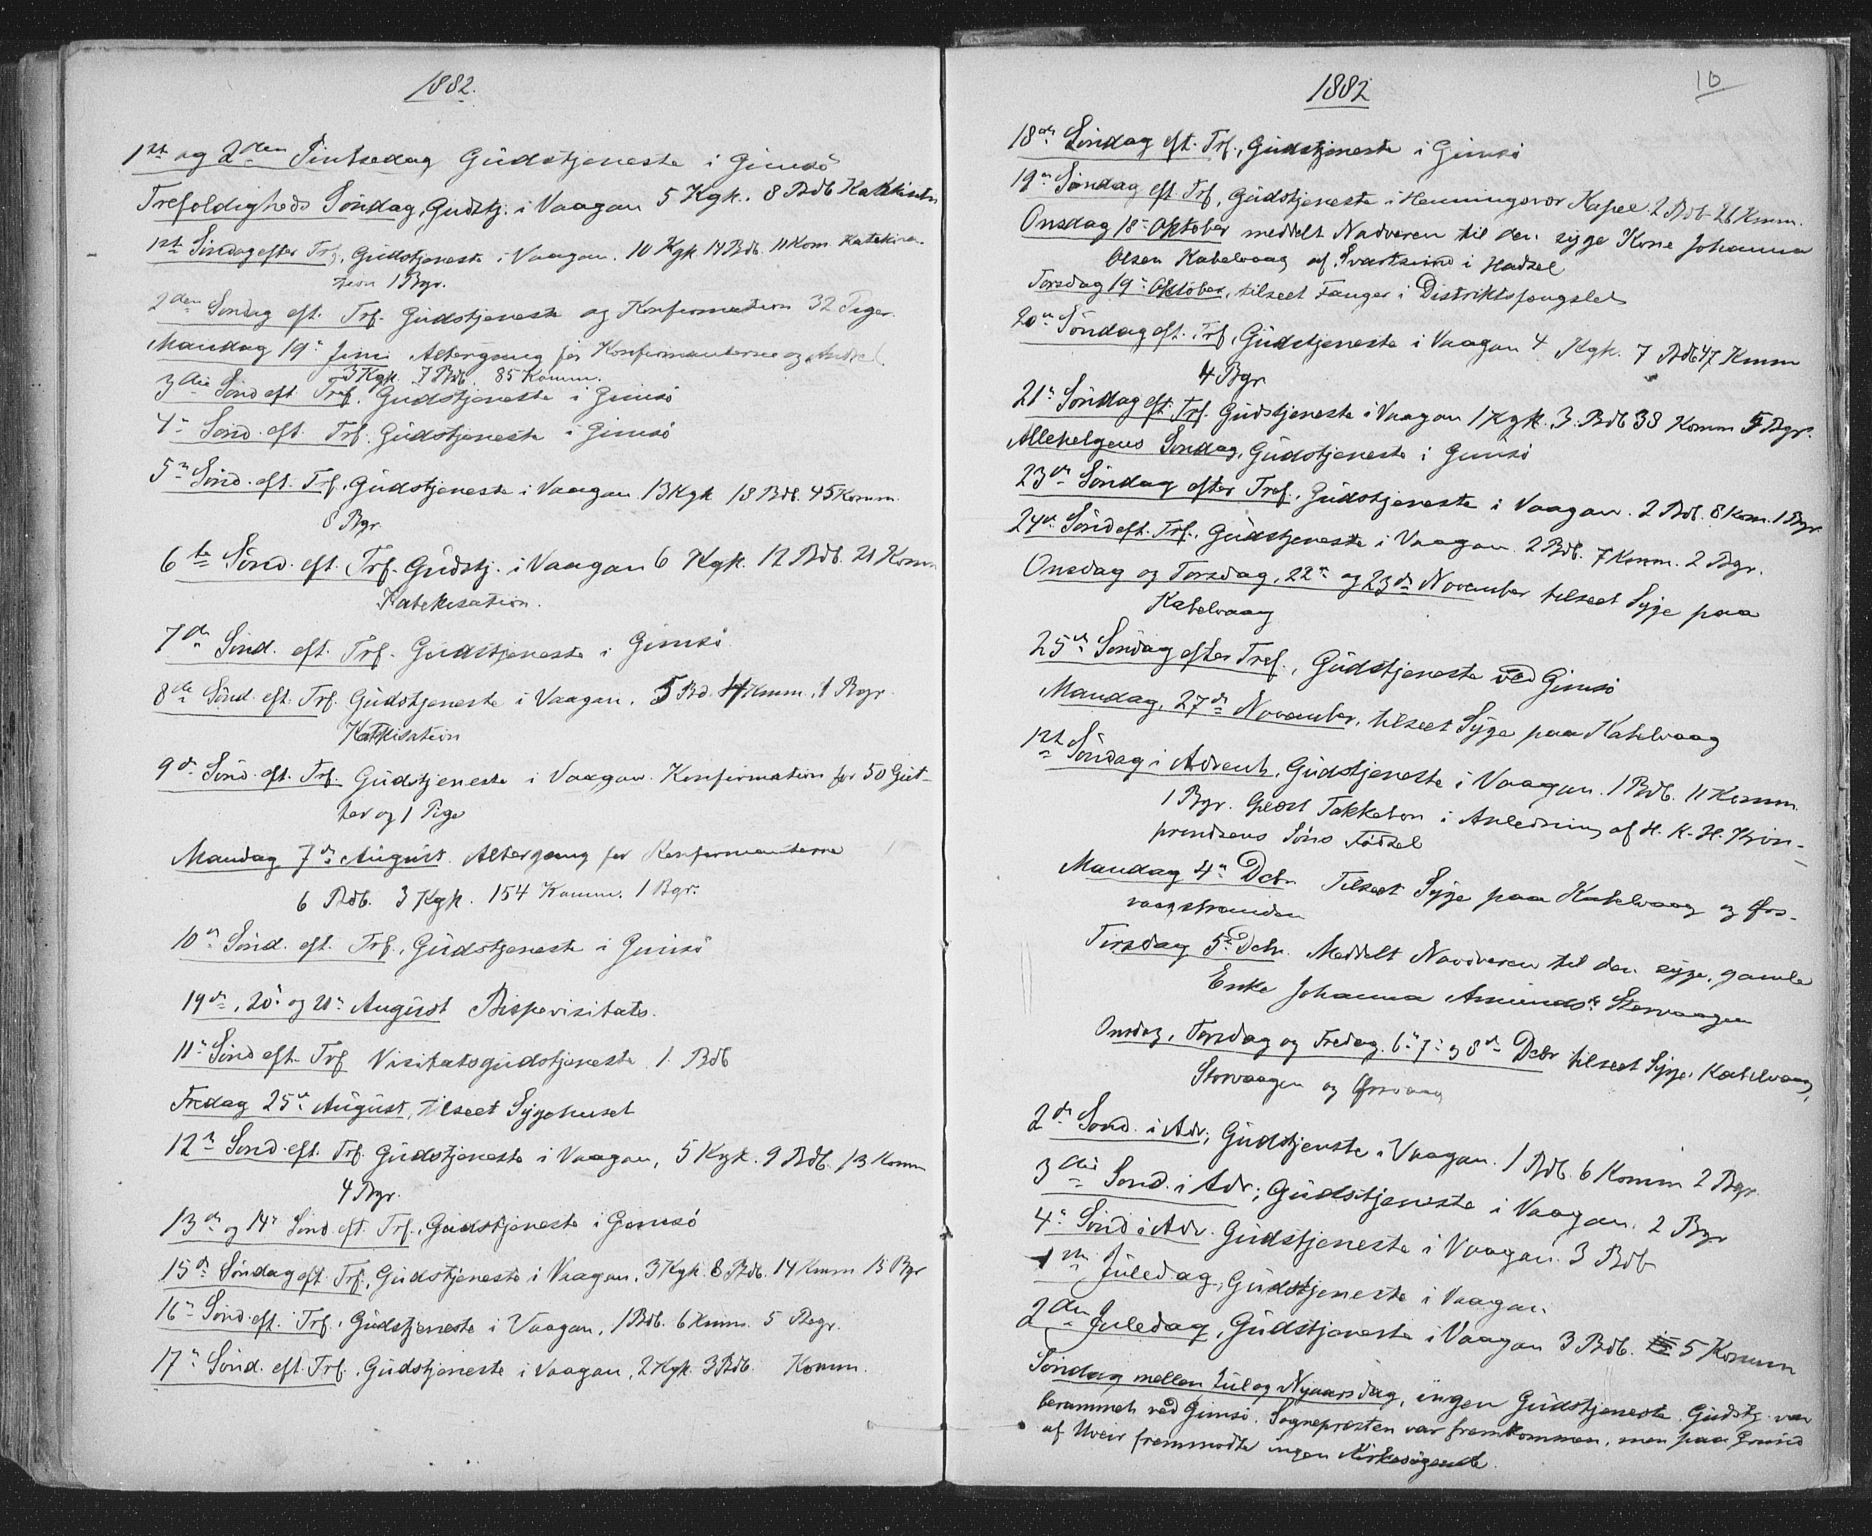 1882.
1ste og 2den Pintsedag Gudstjeneste i Gimsö
Trefoldigheds Söndag, Gudstj. i Vaagan 5 Kgk. 8 Bdb Katekisatn
1ste Söndag efter Trf. Gudstjeneste i Vaagan. 10 Kgk 14 Bdb. 11 Kom Katekisa-
tion 1 Bgr.
2den Söndag eft. Trf. Gudstjeneste og Konfirmation 32 Piger.
Mandag 19de Juni Altergang for Konfirmanterne og Andre
3 Kgk. 7 Bdb. 85 Komm.
3die Sönd eft Tref. Gudstjeneste i Gimsö
4de Sönd. eft. Trf. Gudstjeneste i Gimsö
5te Sönd. eft. Trf. Gudstjeneste i Vaagan 13 Kgk 18 Bdb. 45 Komm.
8 Bgr.
6te Sönd. eft. Trf. Gudstj. i Vaagan 6 Kgk. 12 Bdb. 21 Komm
Katekisation.
7de Sönd. eft. Trf. Gudstjeneste i Gimsö
8de Sönd. eft. Trf. Gudstjeneste i Vaagan. 5 Bd. 4 Komm. 1 Bgr.
Katekisation
9de Sönd. eft. Trf. Gudstjeneste i Vaagan. Konfirmation for 50 Gut-
ter og 1 Pige
Mandag 7de August. Altergang for Konfirmanterne
6 Bdb. 3 Kgk. 154 Komm. 1 Bgr.
10de Sönd. eft. Trf., Gudstjeneste i Gimsö
19de, 20de og 21de August Bispevisitats.
11te Sönd eft. Trf Visitatsgudstjeneste 1. Bdb
Fredag 25de August, tilseet Sygehuset
12te Sönd. eft. Trf. Gudstjeneste i Vaagan, 5 Kgk. 9 Bdb. 13 Komm
4 Bgr.
13de og 14de Sönd. eft. Trf., Gudstjeneste i Gimsö
15de Söndag eft. Trf., Gudstjeneste i Vaagan. 3 Kgk. 8 Bdb. 14 Komm 13 Bgr
16de Sönd. eft. Trf. Gudstjeneste i Vaagan, 1 Bdb. 6 Komm. 5 Begr.
17de Sönd. eft. Trf. Gudstjeneste i Vaagan, 2 Kgk. 3 Bdb. Komm.
1882
10
18de Söndag eft. Trf., Gudstjeneste i Gimsö
19de Söndag eft Trf, Gudstjeneste i Henningsvær Kapel 2 Bdb 26 Komm.
Onsdag 18de Oktober meddelt Nadveren til den syge Kone Johanna
Olsen Kabelvaag af Svartsund i Hadsel
Torsdag 19de Oktober, tilseet Fanger i Distriktsfængslet
20de Söndag eft. Trf., Gudstjeneste i Vaagan 4 Kgk. 7 Bdb 47 Komm
4 Bgr
21de Söndag eft. Trf. Gudstjeneste i Vaagan 1 Kgk. 3. Bdb 38 Komm 5 Bgr.
Allehelgens Söndag, Gudstjeneste i Gimsö
23de Söndag efter Tref., Gudstjeneste i Vaagan. 2 Bdb. 8 Kom. 1 Bgr.
24de Sönd eft. Trf., Gudstjeneste i Vaagan. 2 Bdb. 7 Komm. 2 Bgr.
Onsdag og Torsdag, 22de og 23de November tilseet Syge paa
Kabelvaag
25de Söndag efter Tref., Gudstjeneste ved Gimsö
Mandag, 27de November, tilseet Syge paa Kabelvaag
1ste Söndag i Advent, Gudstjeneste i Vaagan. 1 Bdb. 11 Komm
1 Bgr. Holdt Takkebøn i Anledning af H. K. H. Kron-
prindsens Søns Fødsel
Mandag 4de Dcbr Tilseet Syge paa Kabelvaag og Ørs-
vaagstranden
Tirsdag 5te Dcbr. Meddelt Nadveren til den syge, gamle
Enke Johanna Amundsdr Storvaagen
Onsdag, Torsdag og Fredag. 6te 7de og 8de Dcbr tilseet Syge, Kabelvaag,
Storvaagen og Ørsvaag
2den Sönd. i Adv., Gudstjeneste i Vaagan. 1 Bdb. 6 Komm 2 Bgr.
3die Sönd. i Adv., Gudstjeneste i Vaagan. 2 Bgr
4de Sönd i Adv. Gudstjeneste i Vaagan. 3 Bdb
1ste Juledag, Gudstjeneste i Vaagan.
2den Juledag, Gudstjeneste i Vaagan 3 Bdb. 5 Komm
Søndag mellem Jul og Nyaarsdag, ingen Gudstjeneste. Gudstj. var
berammet ved Gimsö. Sognepresten var fremkommen, men paa Grund
af Uveir fremmødte ingen Kirkesøgende.